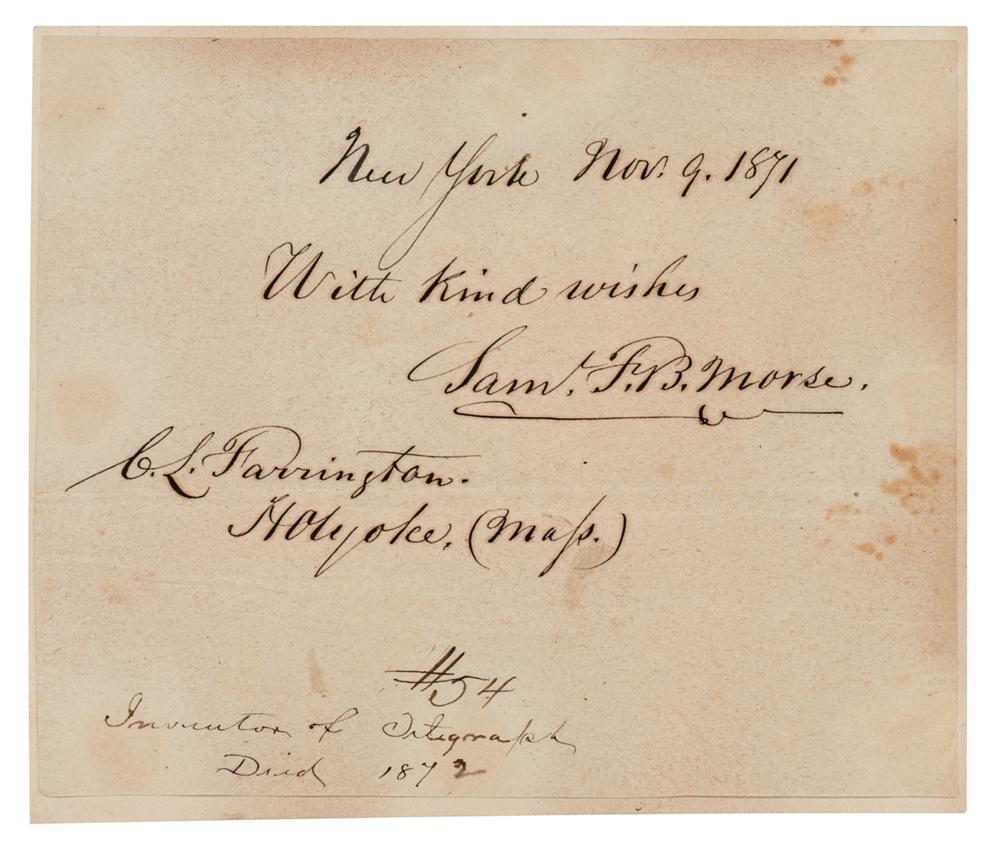 New York Nov. 9. 1871
With kind wishes
Saml. F. B. Morse.
C. L. Farrington.
Holyoke, (Maſs.)
#54
Inventor of Telegraph
Died 1872